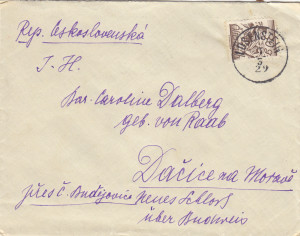 Rep. Československá
I. H.
Bar. Caroline Dalberg
geb. von Raab
Dačice na Moravě
přes č. Budějovice Neues Schloss
über Budweis
2
29